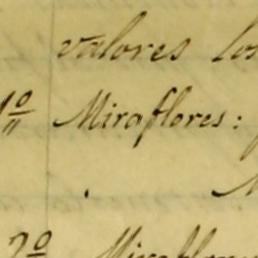 valores los
1º Miraflores:
2º Miraflores